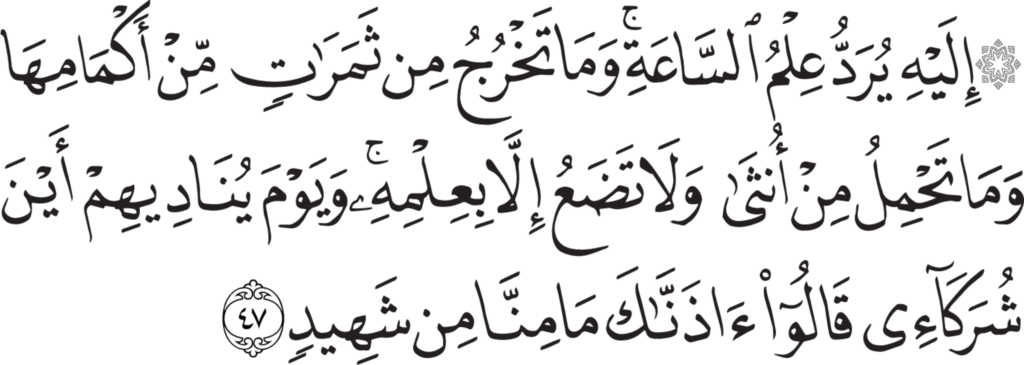 ۞ إِلَيْهِ يُرَدُّ عِلْمُ ٱلسَّاعَةِ ۚ وَمَا تَخْرُجُ مِن ثَمَرَٰتٍ مِّنْ أَكْمَامِهَا
وَمَا تَحْمِلُ مِنْ أُنثَىٰ وَلَا تَضَعُ إِلَّا بِعِلْمِهِۦ ۚ وَيَوْمَ يُنَادِيهِمْ أَيْنَ
شُرَكَآءِى قَالُوٓا۟ ءَاذَنَّٰكَ مَا مِنَّا مِن شَهِيدٍ ٤٧